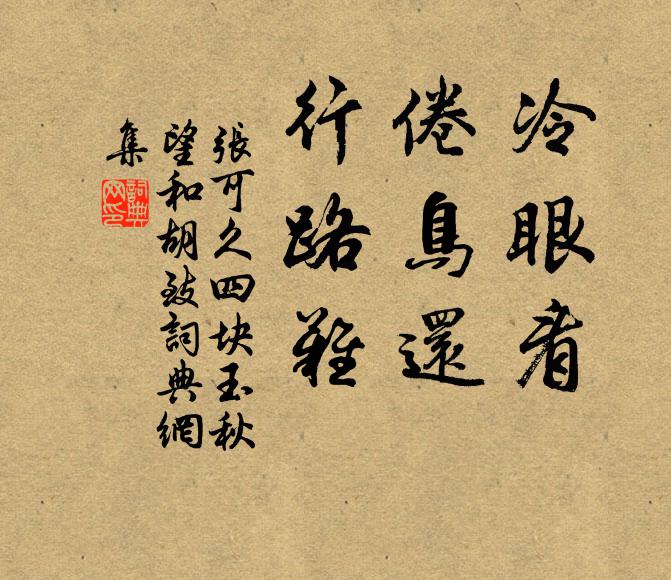 冷眼看
倦鳥還
行路難
張可久四块玉秋
望和胡致詞典網
集
詞典
网印